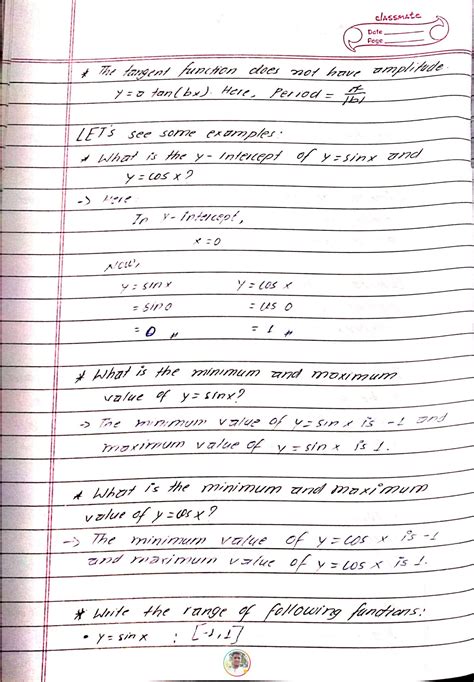 classmate
Date
Page
* The tangent function does not have amplitude.
y = a tan(bx). Here, Period = π/|b|
LET's see some examples.
* What is the y-intercept of y=sinx and
y=cosx?
-> Here
In Y-intercept,
x=0
Now,
y=sinx y=cos x
=sin0 =cos 0
=0 " =1 "
* What is the minimum and maximum
value of y=sinx?
-> The minimum value of y=sin x is -1 and
maximum value of y=sin x is 1.
* What is the minimum and maximum
value of y=cosx?
-> The minimum value of y=cos x is -1
and maximum value of y=cos x is 1.
* Write the range of following functions:
• y=sinx : [-1,1]